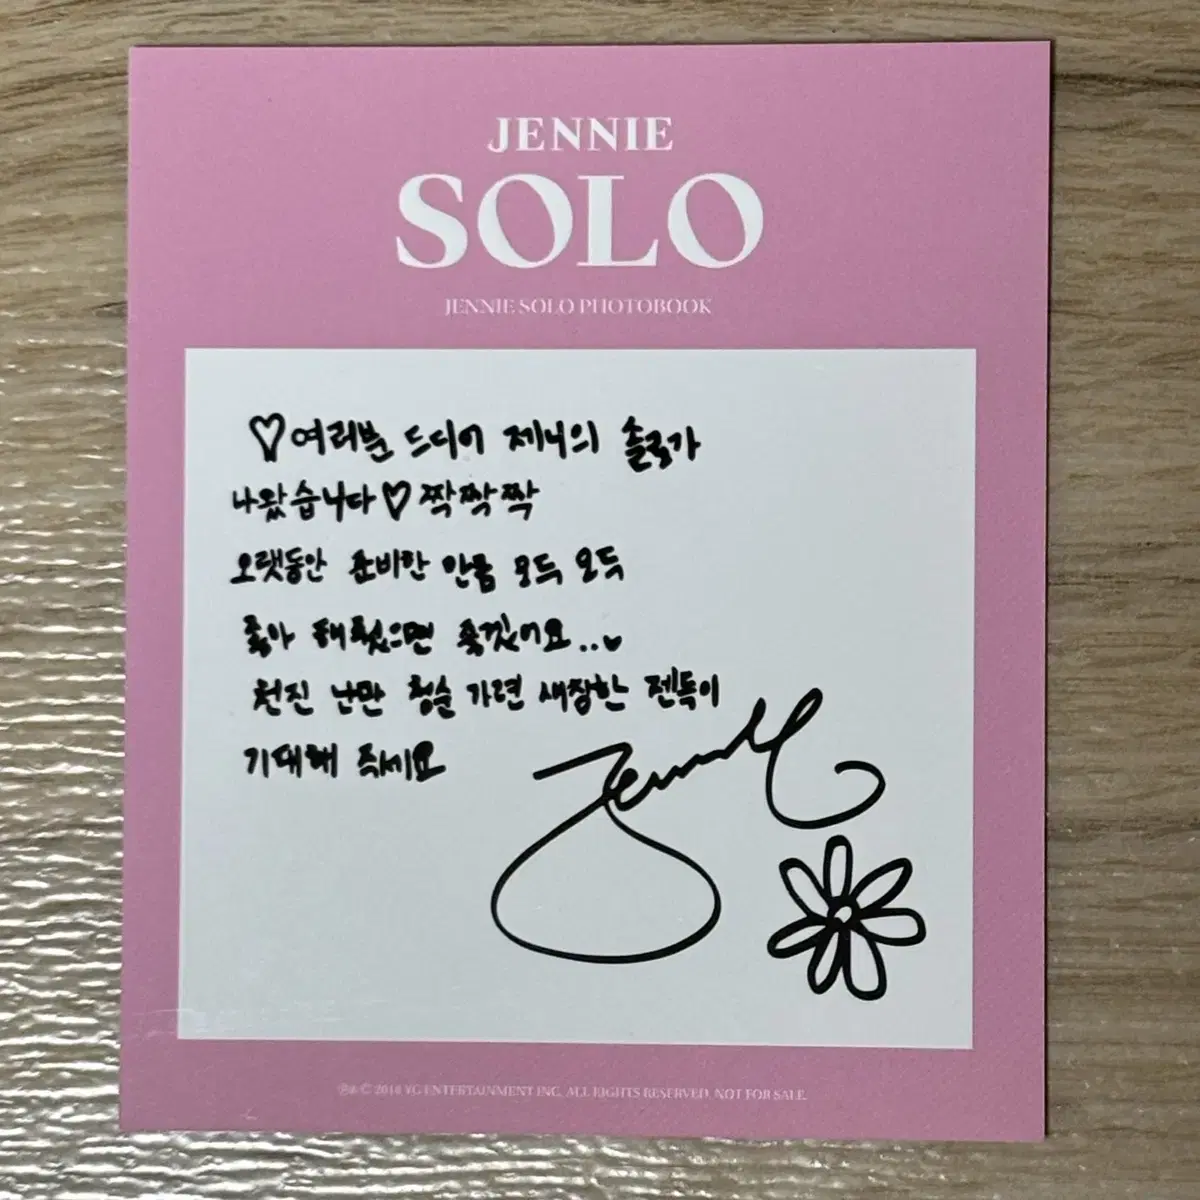 JENNIE
SOLO
JENNIE SOLO PHOTOBOOK
♡여러분 드디어 제니의 솔로가
나왔습니다♡ 짝짝짝
오랫동안 준비한 만큼 모두 모두
좋아 해줬으면 좋겠어요..♥
천진 난만 청순 가련 새침한 젠득이
기대해 주세요
Jennie
℗& © 2018 YG ENTERTAINMENT INC. ALL RIGHTS RESERVED. NOT FOR SALE.